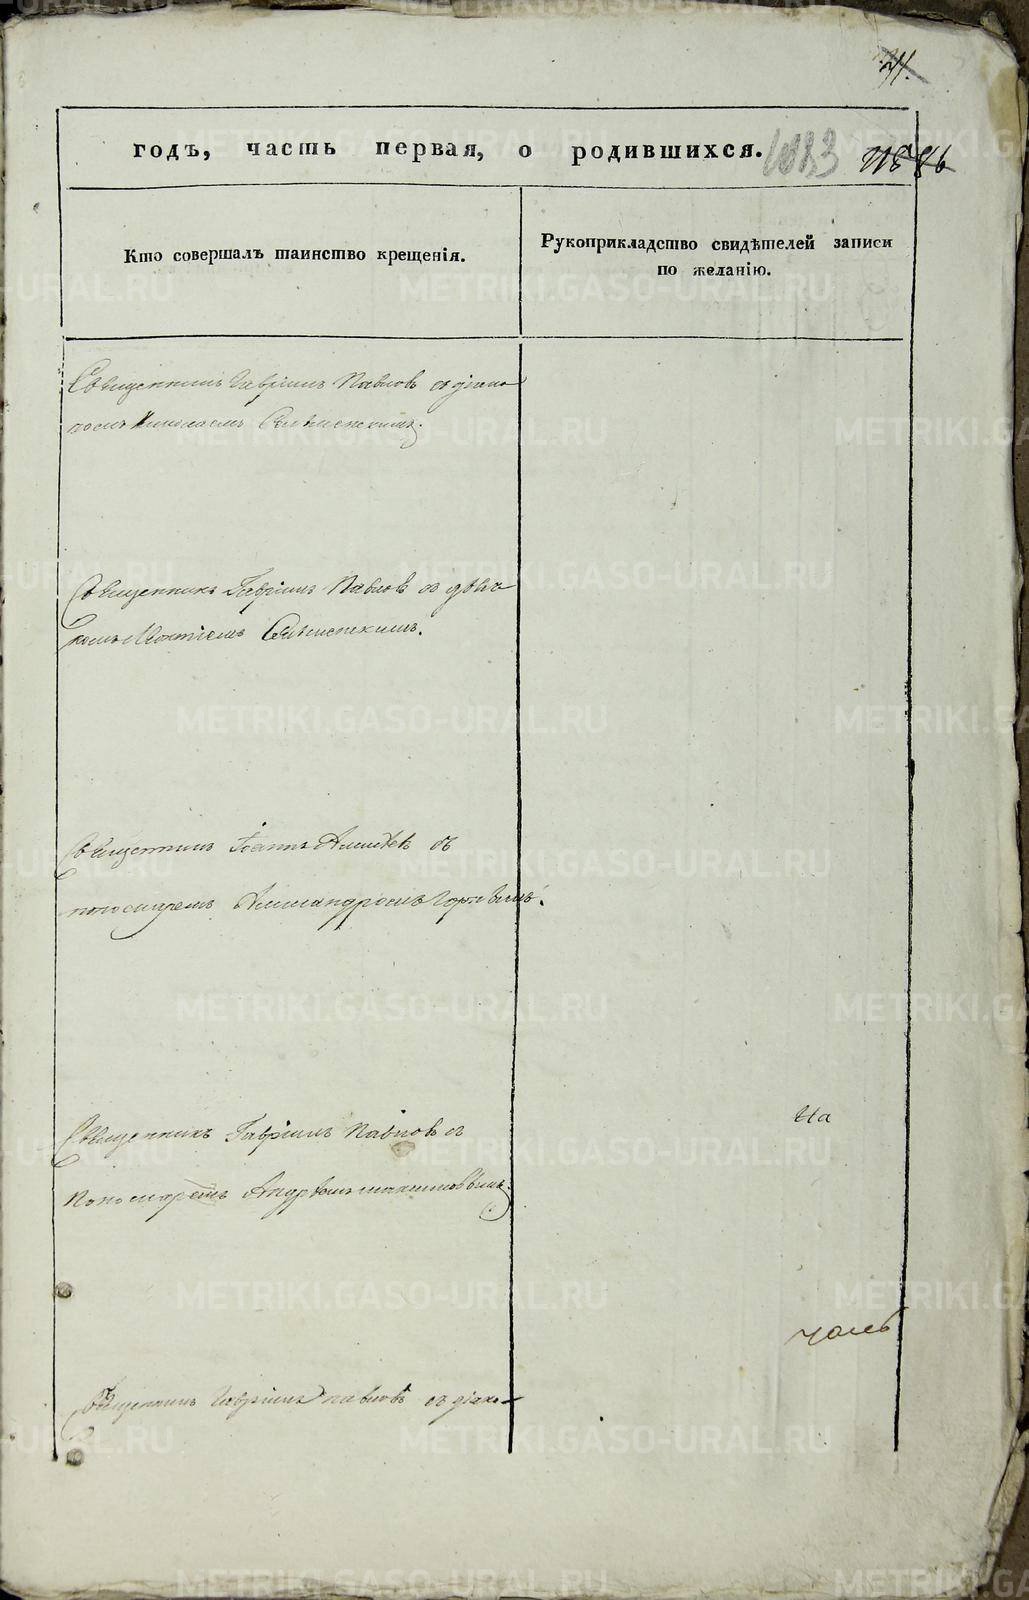 71.
годъ, часть первая, о родившихся. 1083
Кто совершалъ таинство крещенія.
Рукоприкладство свидѣтелей записи
по желанію.
Священникъ Гавріилъ Павловъ съ діако
номъ Николаемъ
Священникъ Гавріилъ Павловъ съ дьяч
комъ
Священникъ Іоаннъ съ
пономаремъ Александромъ
Священникъ Гавріилъ Павловъ съ
Пономаремъ Андреемъ
На
часъ
Священникъ Гавріилъ Павловъ съ діако-
METRIKI.GASO-URAL.RU